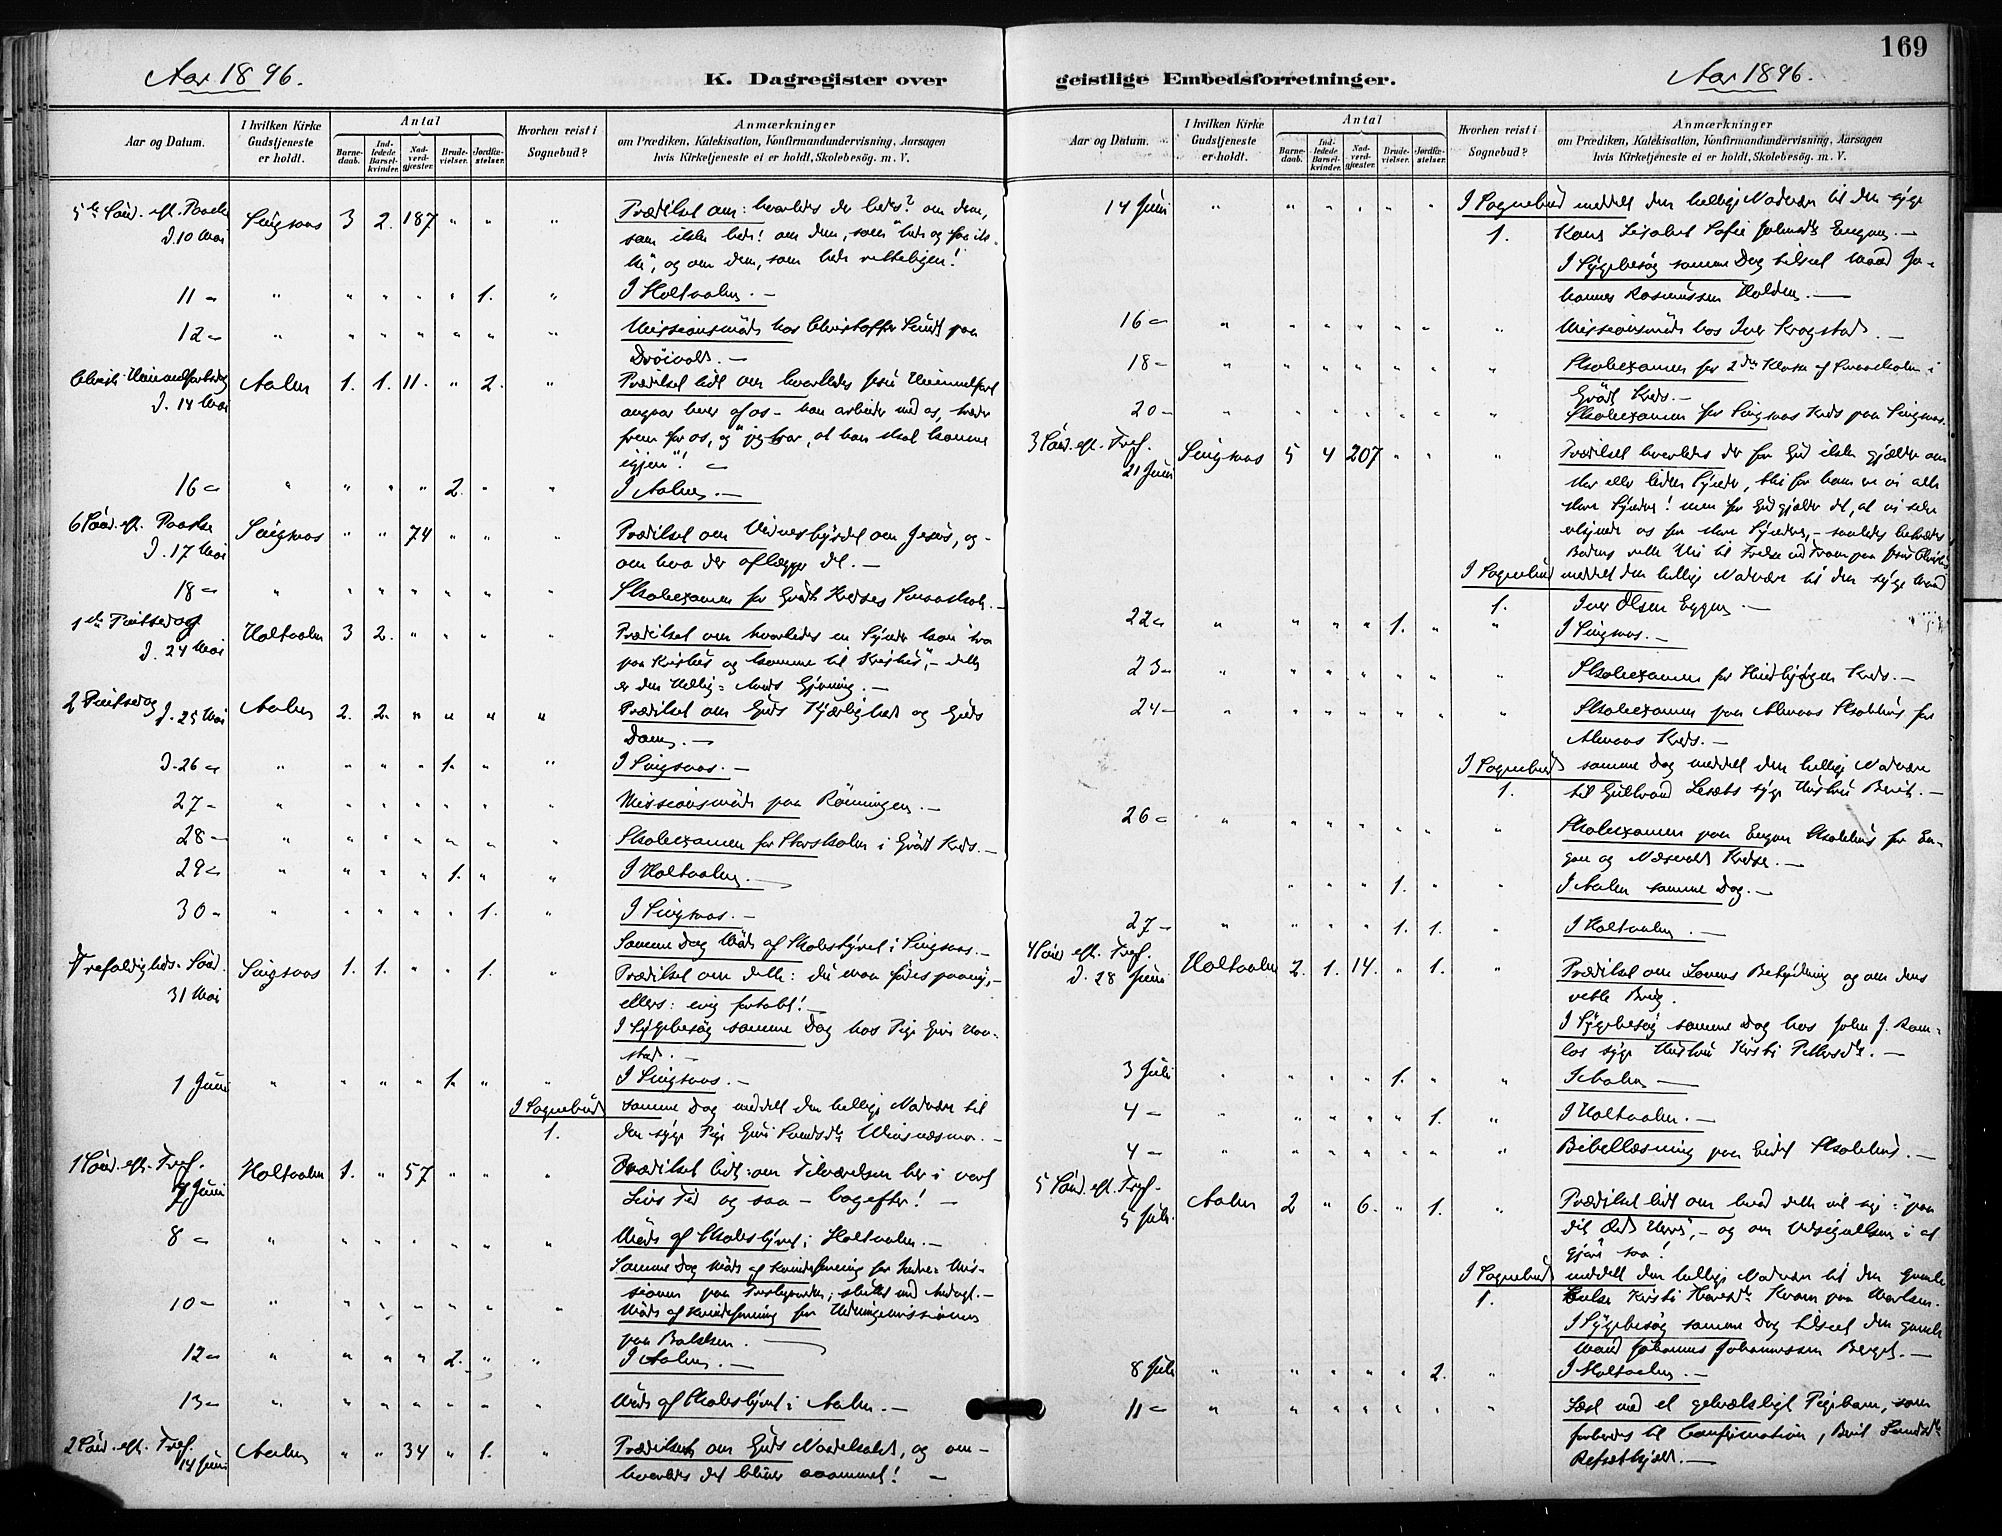 169
Aar 1896.
K. Dagregister over
geistlige Embedsforretninger.
Aar 1896.
Aar og Datum.
I hvilken Kirke Gudstjeneste er holdt.
Antal
Barnedaab.
Indledede Barselkvinder.
Nadverdgjæster.
Brudevielser.
Jordfæstelser.
Hvorhen reist i Sognebud?
Anmærkninger
om Prædiken, Katekisation, Konfirmandundervisning, Aarsagen
hvis Kirketjeneste ei er holdt, Skolebesøg. m. V.
5te Sønd. eft. Paaske Singsaas 3 2. 187 " " " Prædiket om: hvorledes der bedes? om dem,
d. 10 Mai som ikke bede! om dem, som "bede og faa ik-
ke", og om dem, som bede retteligen!
11 " " " " " " 1. " I Holtaalen. —
12 " " " " " " " " Missionsmøde hos Christoffer Sundt paa
Drøivold. —
Christi Himmelfartsdag Aalen 1. 1. 11. " 2. " Prædiket lidt om hvorledes Jesu Himmelfart
d. 14 Mai angaar hver af os - han arbeider med os, træder
frem for os, og "jeg tror, at han skal komme
igjen"! —
16 " " " " " 2. " " I Aalen. —
6 Sønd. eft. Paaske Singsaas " " 74 " " " Prædiket om Vidnesbyrdet om Jesus, og -
d. 17 Mai om hva der aflægger det. —
18 " " " " " " " " Skoleexamen for Grødt Kredses Smaaskole. —
1ste Pintsedag Holtaalen 3 2. " " " " Prædiket om hvorledes en Synder kan "tro
d. 24 Mai paa Kristus og komme til Kristus", - dette
er den Hellig-Aands Gjerning. —
2 Pintsedag d. 25 Mai Aalen 2. 2. " " " " Prædiket om Guds Kjærlighed og Guds
Dom. —
d. 26 " " " " " 1. " " I Singsaas. —
27 " " " " " " " " Missionsmøde paa Rønningen. —
28 " " " " " " " " Skoleexamen for Storskolen i Grødt Kreds. —
29 " " " " " 1. " " I Holtaalen. —
30 " " " " " " 1. " I Singsaas. —
Samme Dag Møde af Skolestyret i Singsaas. —
Trefoldigheds-Sønd. Singsaas 1. 1. " " 1. " Prædiket om dette: du maa fødes paany, -
31 Mai ellers: evig fortabt! —
I Sygebesøg samme Dag hos Pige Guri Hov-
stad. —
1 Juni " " " " 1. " " I Singsaas. —
I Sognebud samme Dag meddelt den hellige Nadvere til
1. den syge Pige Guri Svendsdtr —
1 Sønd. eft. Tref. Holtaalen 1. " 57 " " " Prædiket lidt om Tilværelsen her i vort
7 Juni Livs Tid og saa - bagefter! —
8 " " " " " " " " Møde af Skolestyret i Holtaalen. —
Samme Dag Møde af Kvindeforening for Indre-Mis-
sionen paa Prestegaarden; sluttet med Andagt. —
10 " " " " " " " " Møde af Kvindeforening for Hedningemissionen
paa Bakken. —
12 " " " " " 2. " " I Aalen. —
13 " " " " " " " " Møde af Skolestyret i Aalen. —
2 Sønd. eft. Tref. Aalen " " 34 " 1. " Prædiket om Guds Naadekald, og om -
14 Juni hvorledes det bliver annammet! —
Aar og Datum.
I hvilken Kirke Gudstjeneste er holdt.
Antal
Barnedaab.
Indledede Barselkvinder.
Nadverdgjæster.
Brudevielser.
Jordfæstelser.
Hvorhen reist i Sognebud?
Anmærkninger
om Prædiken, Katekisation, Konfirmandundervisning, Aarsagen
hvis Kirketjeneste ei er holdt, Skolebesøg. m. V.
14 Juni " " " " " " I Sognebud meddelt den hellige Nadvere til den syge
1. Kone Lisabet Sofie Johnsdtr Engan. —
I Sygebesøg samme Dag tilseet Mand Jo-
hannes Rasmussen Holden. —
16 " " " " " " " " Missionsmøde hos Iver Krogstad. —
18 " " " " " " " " Skoleexamen for 2den Klasse af Smaaskolen i
Grødt Kreds. —
20 " " " " " " " " Skoleexamen for Singsaas Kreds paa Singsaas.
3 Sønd. eft. Tref. Singsaas 5 4 207 " " " Prædiket hvorledes der for Gud ikke gjælder om
21 Juni stor eller liden Synder, thi for ham er vi alle
store Syndere! men for Gud gjælder det, at vi selv
erkjende os for store Syndere, - saaledes betrædes
Bodens rette Vei til Frelse ved Troen paa Jesus Christus
I Sognebud meddelt den hellige Nadvere til den syge Mand
1. Iver Olsen Eggen. —
22 " " " " " 1. " " I Singsaas. —
23 " " " " " " " " Skoleexamen for Kreds. —
24 " " " " " " " " Skoleexamen paa Almaas Skolehus for
Almaas Kreds. —
I Sognebud samme Dag meddelt den hellige Nadvere
1. til syge Hustru Berit. —
26 " " " " " " " " Skoleexamen paa Engan Skolehus for En-
gan og Næsvold Kredse. —
" " " 1. " " I Aalen samme Dag. —
27 " " " " " 1. 1. " I Holtaalen. —
4 Sønd. eft. Tref. Holtaalen 2. 1. 14. " 1. " Prædiket om Lovens Betydning og om dens
d. 28 Juni rette Brug.
I Sygebesøg samme Dag hos John J. Ram-
los syge Hustru Kirsti Pettersdtr. —
3 Juli " " " " 1. " " I Aalen —
4 " " " " " " 1. " I Holtaalen. —
4 " " " " " " " " Bibellæsning paa Skolehus. —
5 Sønd. eft. Tref. Aalen 2 " 6. " 1. " Prædiket lidt om hvad dette vil sige: "paa
5 Juli. dit Ord Herre", - og om Velsignelsen i at
gjøre saa!
I Sognebud meddelt den hellige Nadvere til den gamle
1. Enke Kirsti Kvam paa
I Sygebesøg samme Dag tilseet den gamle
Mand Johannes Johannessen Berget. —
8 Juli " " " " " 2. " I Holtaalen. —
11 " " " " " " " " Læst med et Pigebarn, som
forberedes til Confirmation, Berit Svendsdtr
—